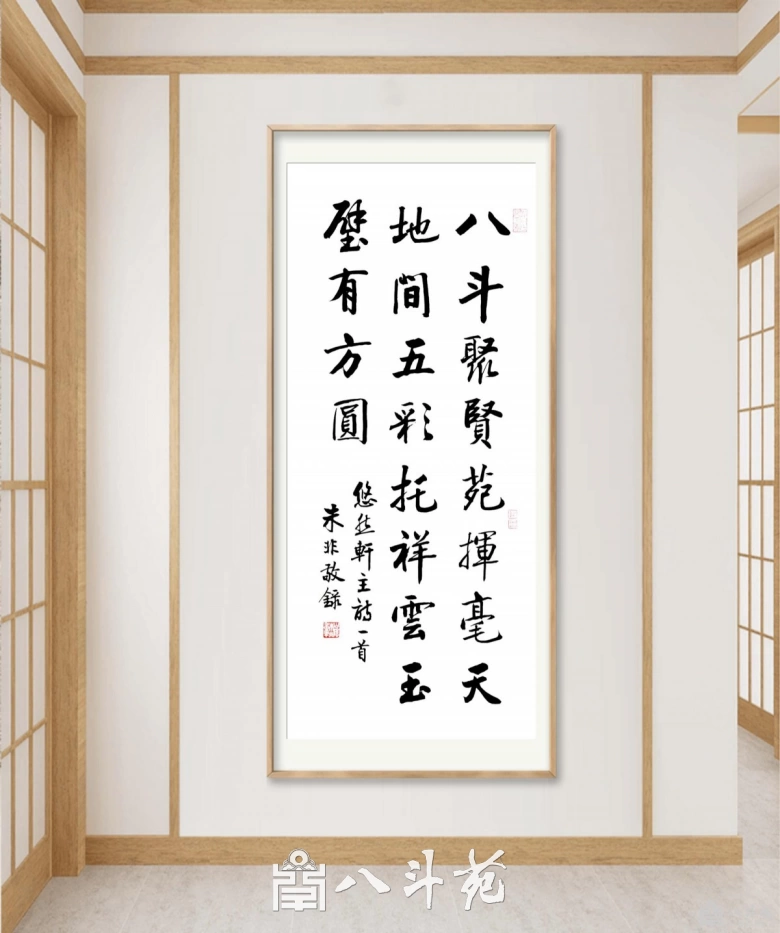 八斗聚賢苑揮毫天
地間五彩托祥雲玉
璧有方圓
悠然軒主詩一首
朱非敬錄
八斗苑